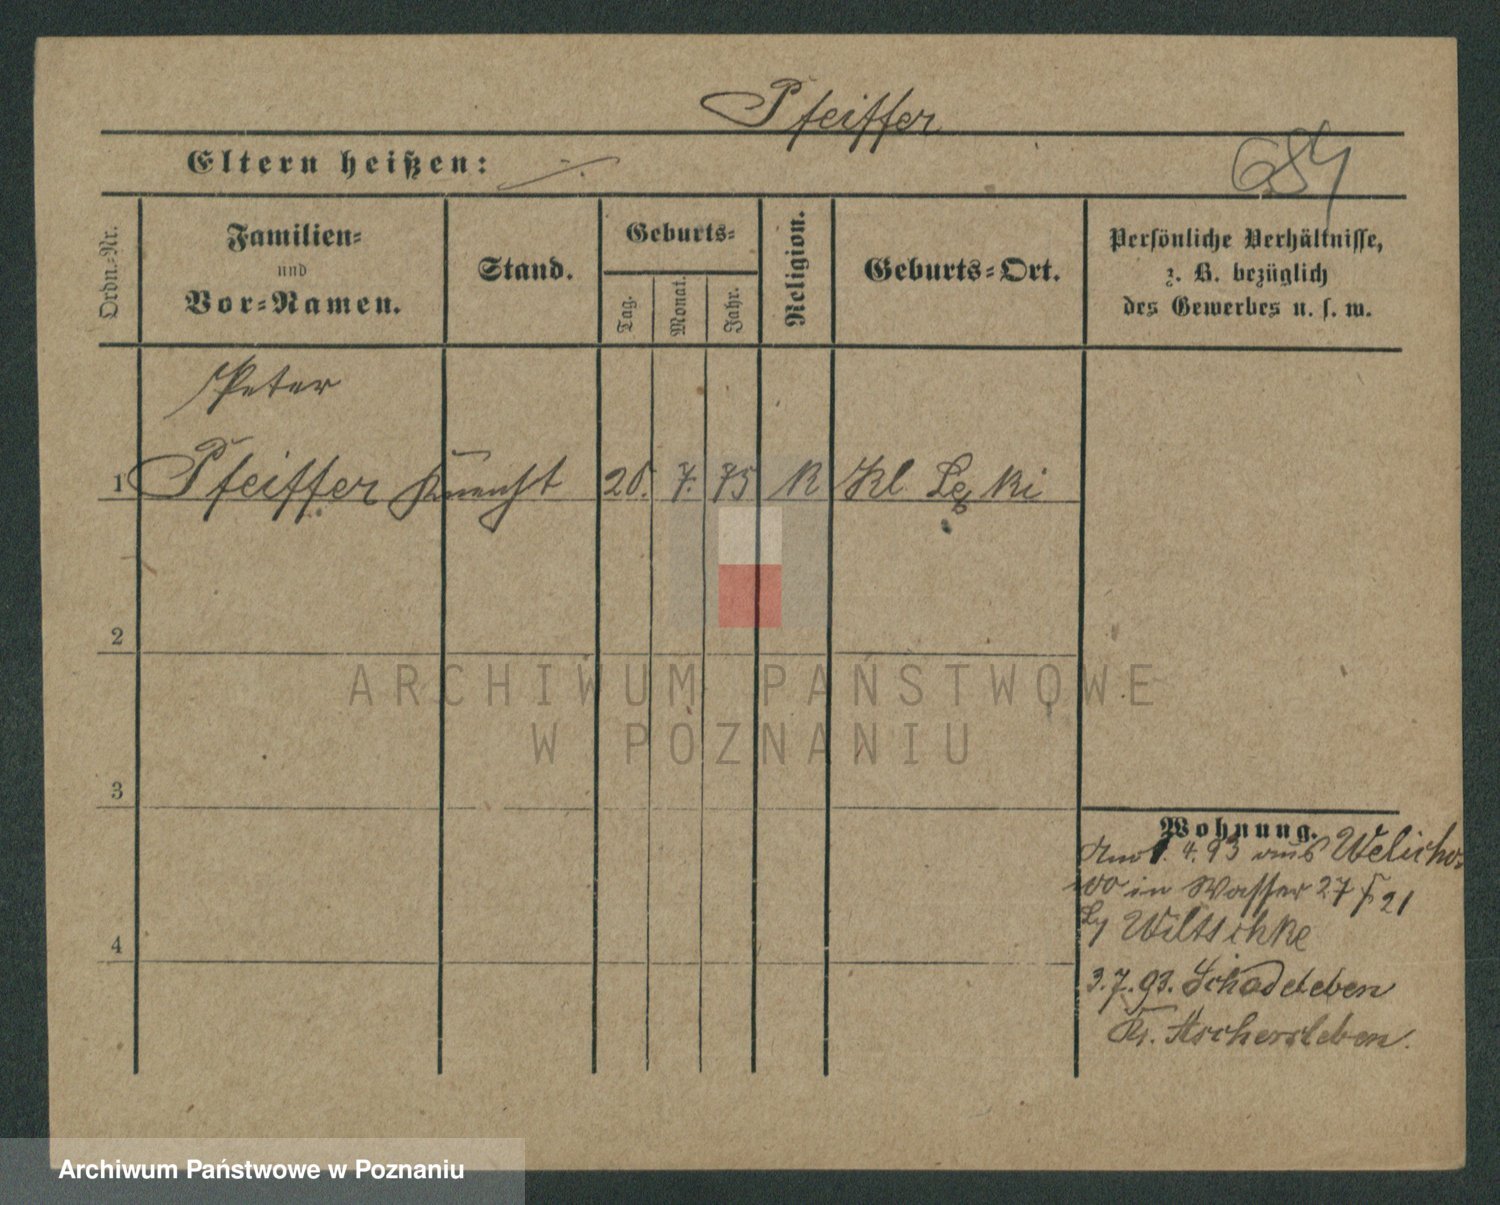 Pfeiffer
Eltern heißen:
684
Ordn.-Nr.
Familien-
und
Vor-Namen.
Stand.
Geburts-
Tag.
Monat.
Jahr.
Religion.
Geburts-Ort.
Persönliche Verhältnisse,
z. B. bezüglich
des Gewerbes u. s. w.
Peter
1 Pfeiffer Knecht 7. 75 K Kl Lęki
2
3
4
Wohnung.
1. 4. 93 aus Welicho-
wo in Wasser 27
Wiltschke
3. 7. 93. Schadeleben
Kr. Aschersleben.
ARCHIWUM PAŃSTWOWE
W POZNANIU
Archiwum Państwowe w Poznaniu